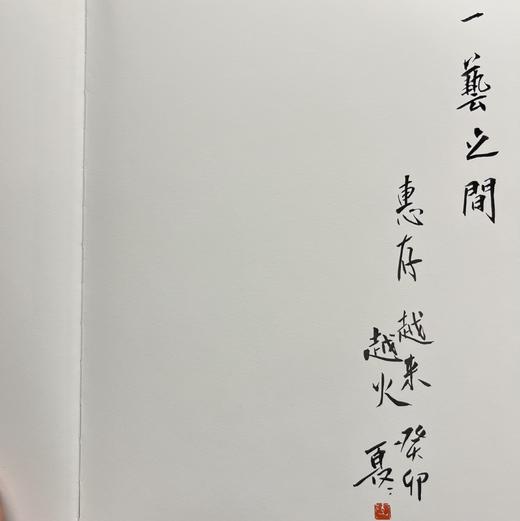 一藝之間
惠存
越来
越火
癸卯
夏